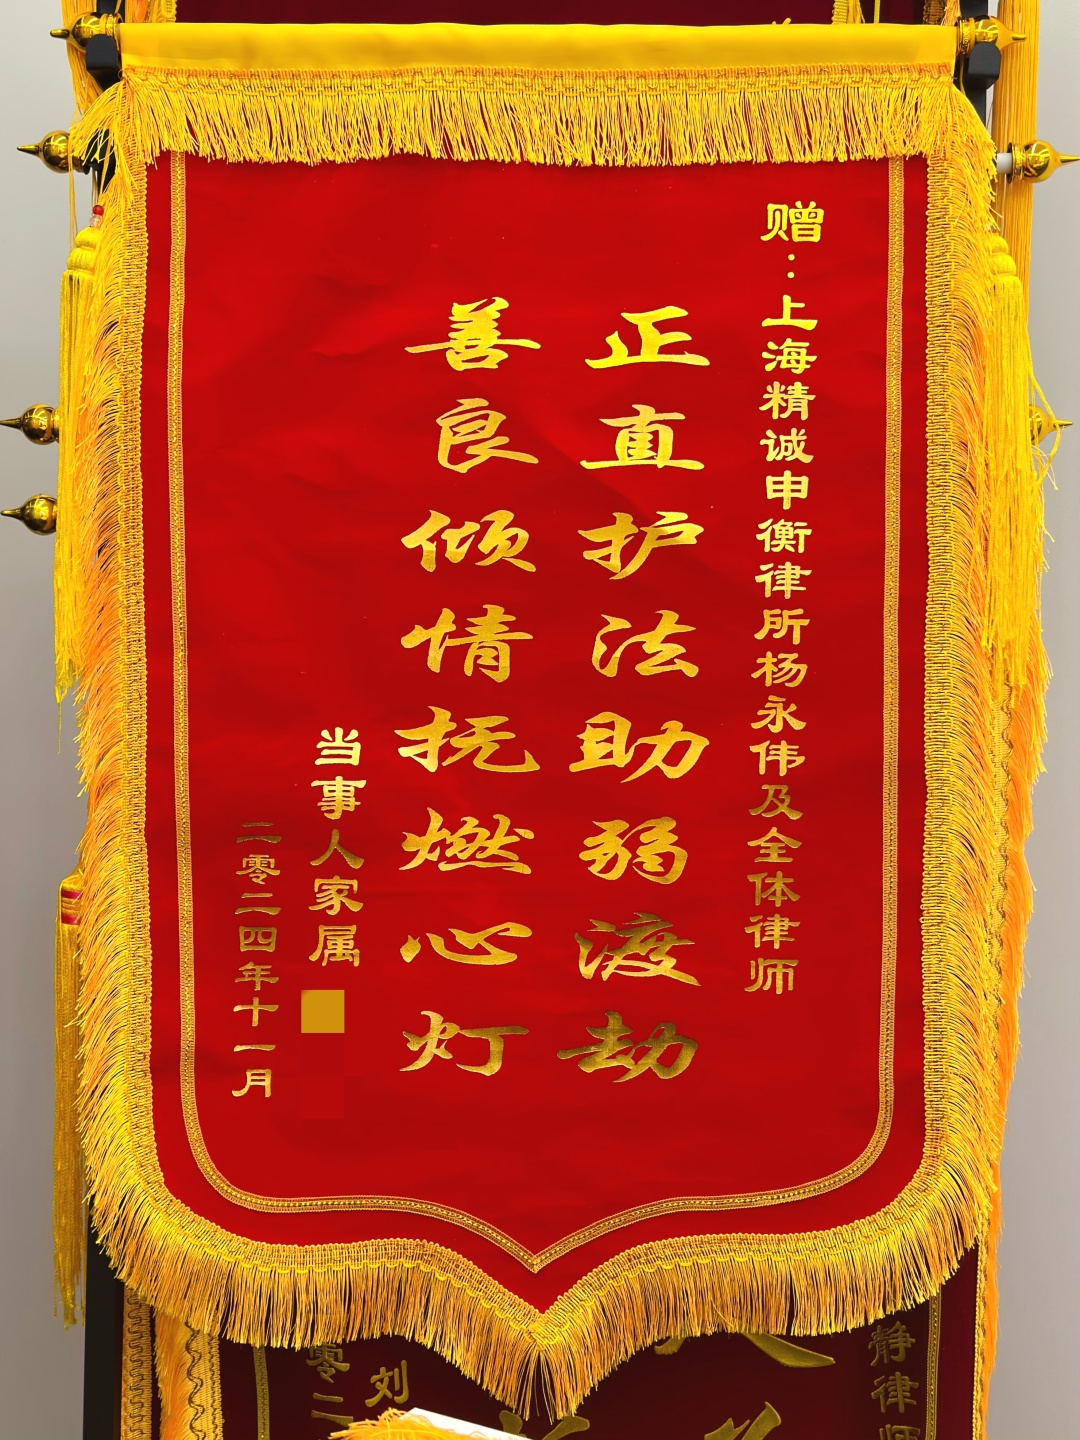 赠：上海精诚申衡律所杨永伟及全体律师
正直护法助弱渡劫
善良倾情抚燃心灯
当事人家属
二零二四年十一月
静律师
刘
零二